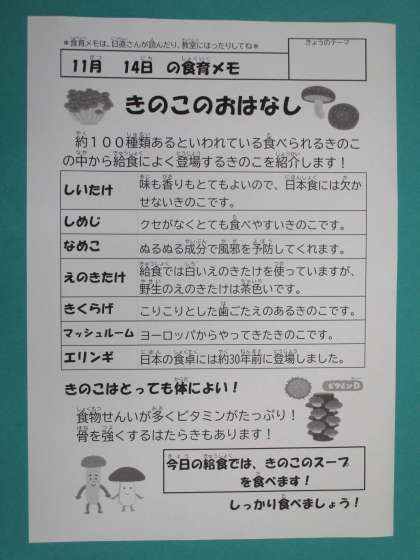 ＊食育メモは、日直さんが読んだり、教室にはったりしてね＊
きょうのテーマ
11月 14日 の食育メモ
きのこのおはなし
約１００種類あるといわれている食べられるきのこ
の中から給食によく登場するきのこを紹介します！
しいたけ 味も香りもとてもよいので、日本食には欠か
せないきのこです。
しめじ クセがなくとても食べやすいきのこです。
なめこ ぬるぬる成分で風邪を予防してくれます。
えのきたけ 給食では白いえのきたけを使っていますが、
野生のえのきたけは茶色いです。
きくらげ こりこりとした歯ごたえのあるきのこです。
マッシュルーム ヨーロッパからやってきたきのこです。
エリンギ 日本の食卓には約30年前に登場しました。
きのこはとっても体によい！
ビタミンD
食物せんいが多くビタミンがたっぷり！
骨を強くするはたらきもあります！
今日の給食では、きのこのスープ
を食べます！
しっかり食べましょう！